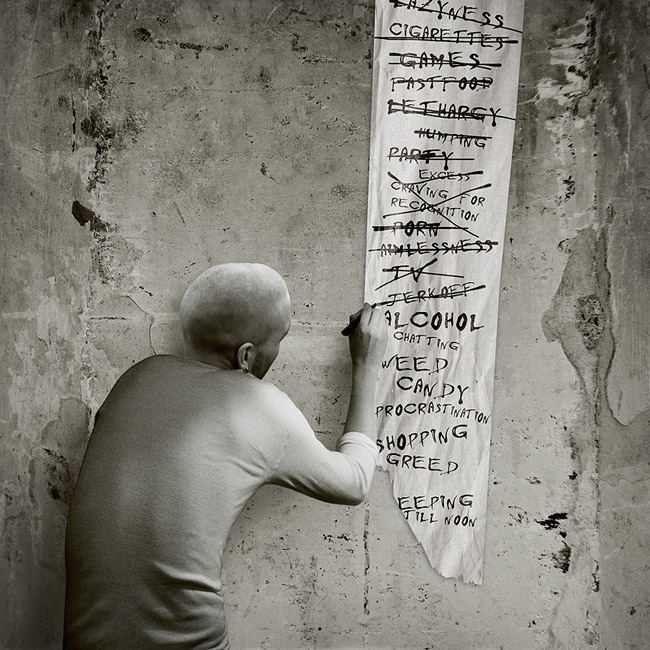 LAZYNESS
CIGARETTES
GAMES
FASTFOOD
LETHARGY
HUMPING
PARTY
EXCESS
CRAVING FOR
RECOGNITION
PORN
AIMLESSNESS
TV
JERKOFF
ALCOHOL
CHATTING
WEED
CANDY
PROCRASTINATION
SHOPPING
GREED
EEPING
TILL NOON